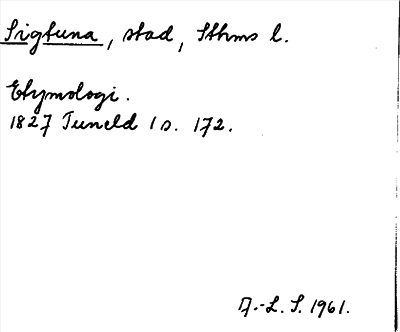 Sigtuna, stad, Sthms l.
Etymologi.
1827 Tuneld 1 s. 172.
A.-L. S. 1961.